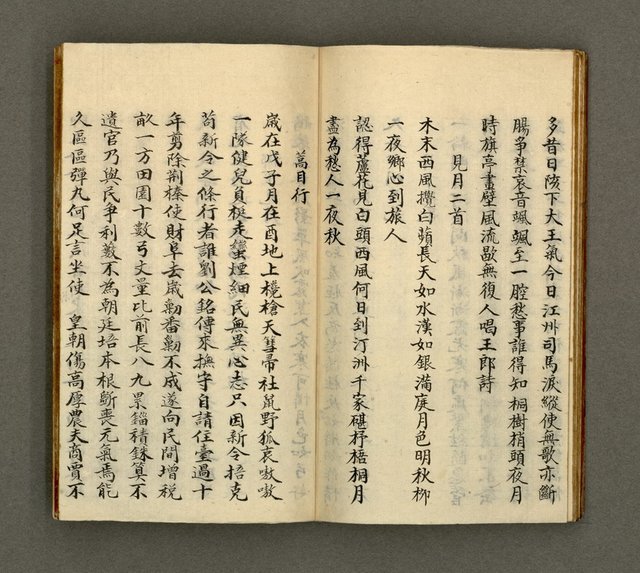 多昔日陔下大王氣今日江州司馬淚縱使無歌亦斷
腸爭禁哀音颯颯至一腔愁事誰得知桐樹梢頭夜月
時旗亭畫壁風流歇無復人唱王郎詩
見月二首
木末西風攪白蘋長天如水漢如銀滿庭月色明秋柳
一夜鄉心到旅人
認得蘆花見白頭西風何日到汀洲千家砧杵梧桐月
盡為愁人一夜秋
蒿目行
歲在戊子月在酉地上欃槍天彗帚社鼠野狐哀嗷嗷
一隊健兒負梃走蠻煙細民無異心志只因新令掊克
苛新令之條行者誰劉公銘傳來撫守自請任臺過十
年剪除荆榛使財阜去歲勦番勦不成遂向民間增稅
畝一方田園十數弓丈量比前長八九景錙積銖算不
遺官乃與民爭利藪不為朝廷培本根斲喪元氣焉能
久區區彈丸何足言坐使 皇朝傷高厚農夫商賈不